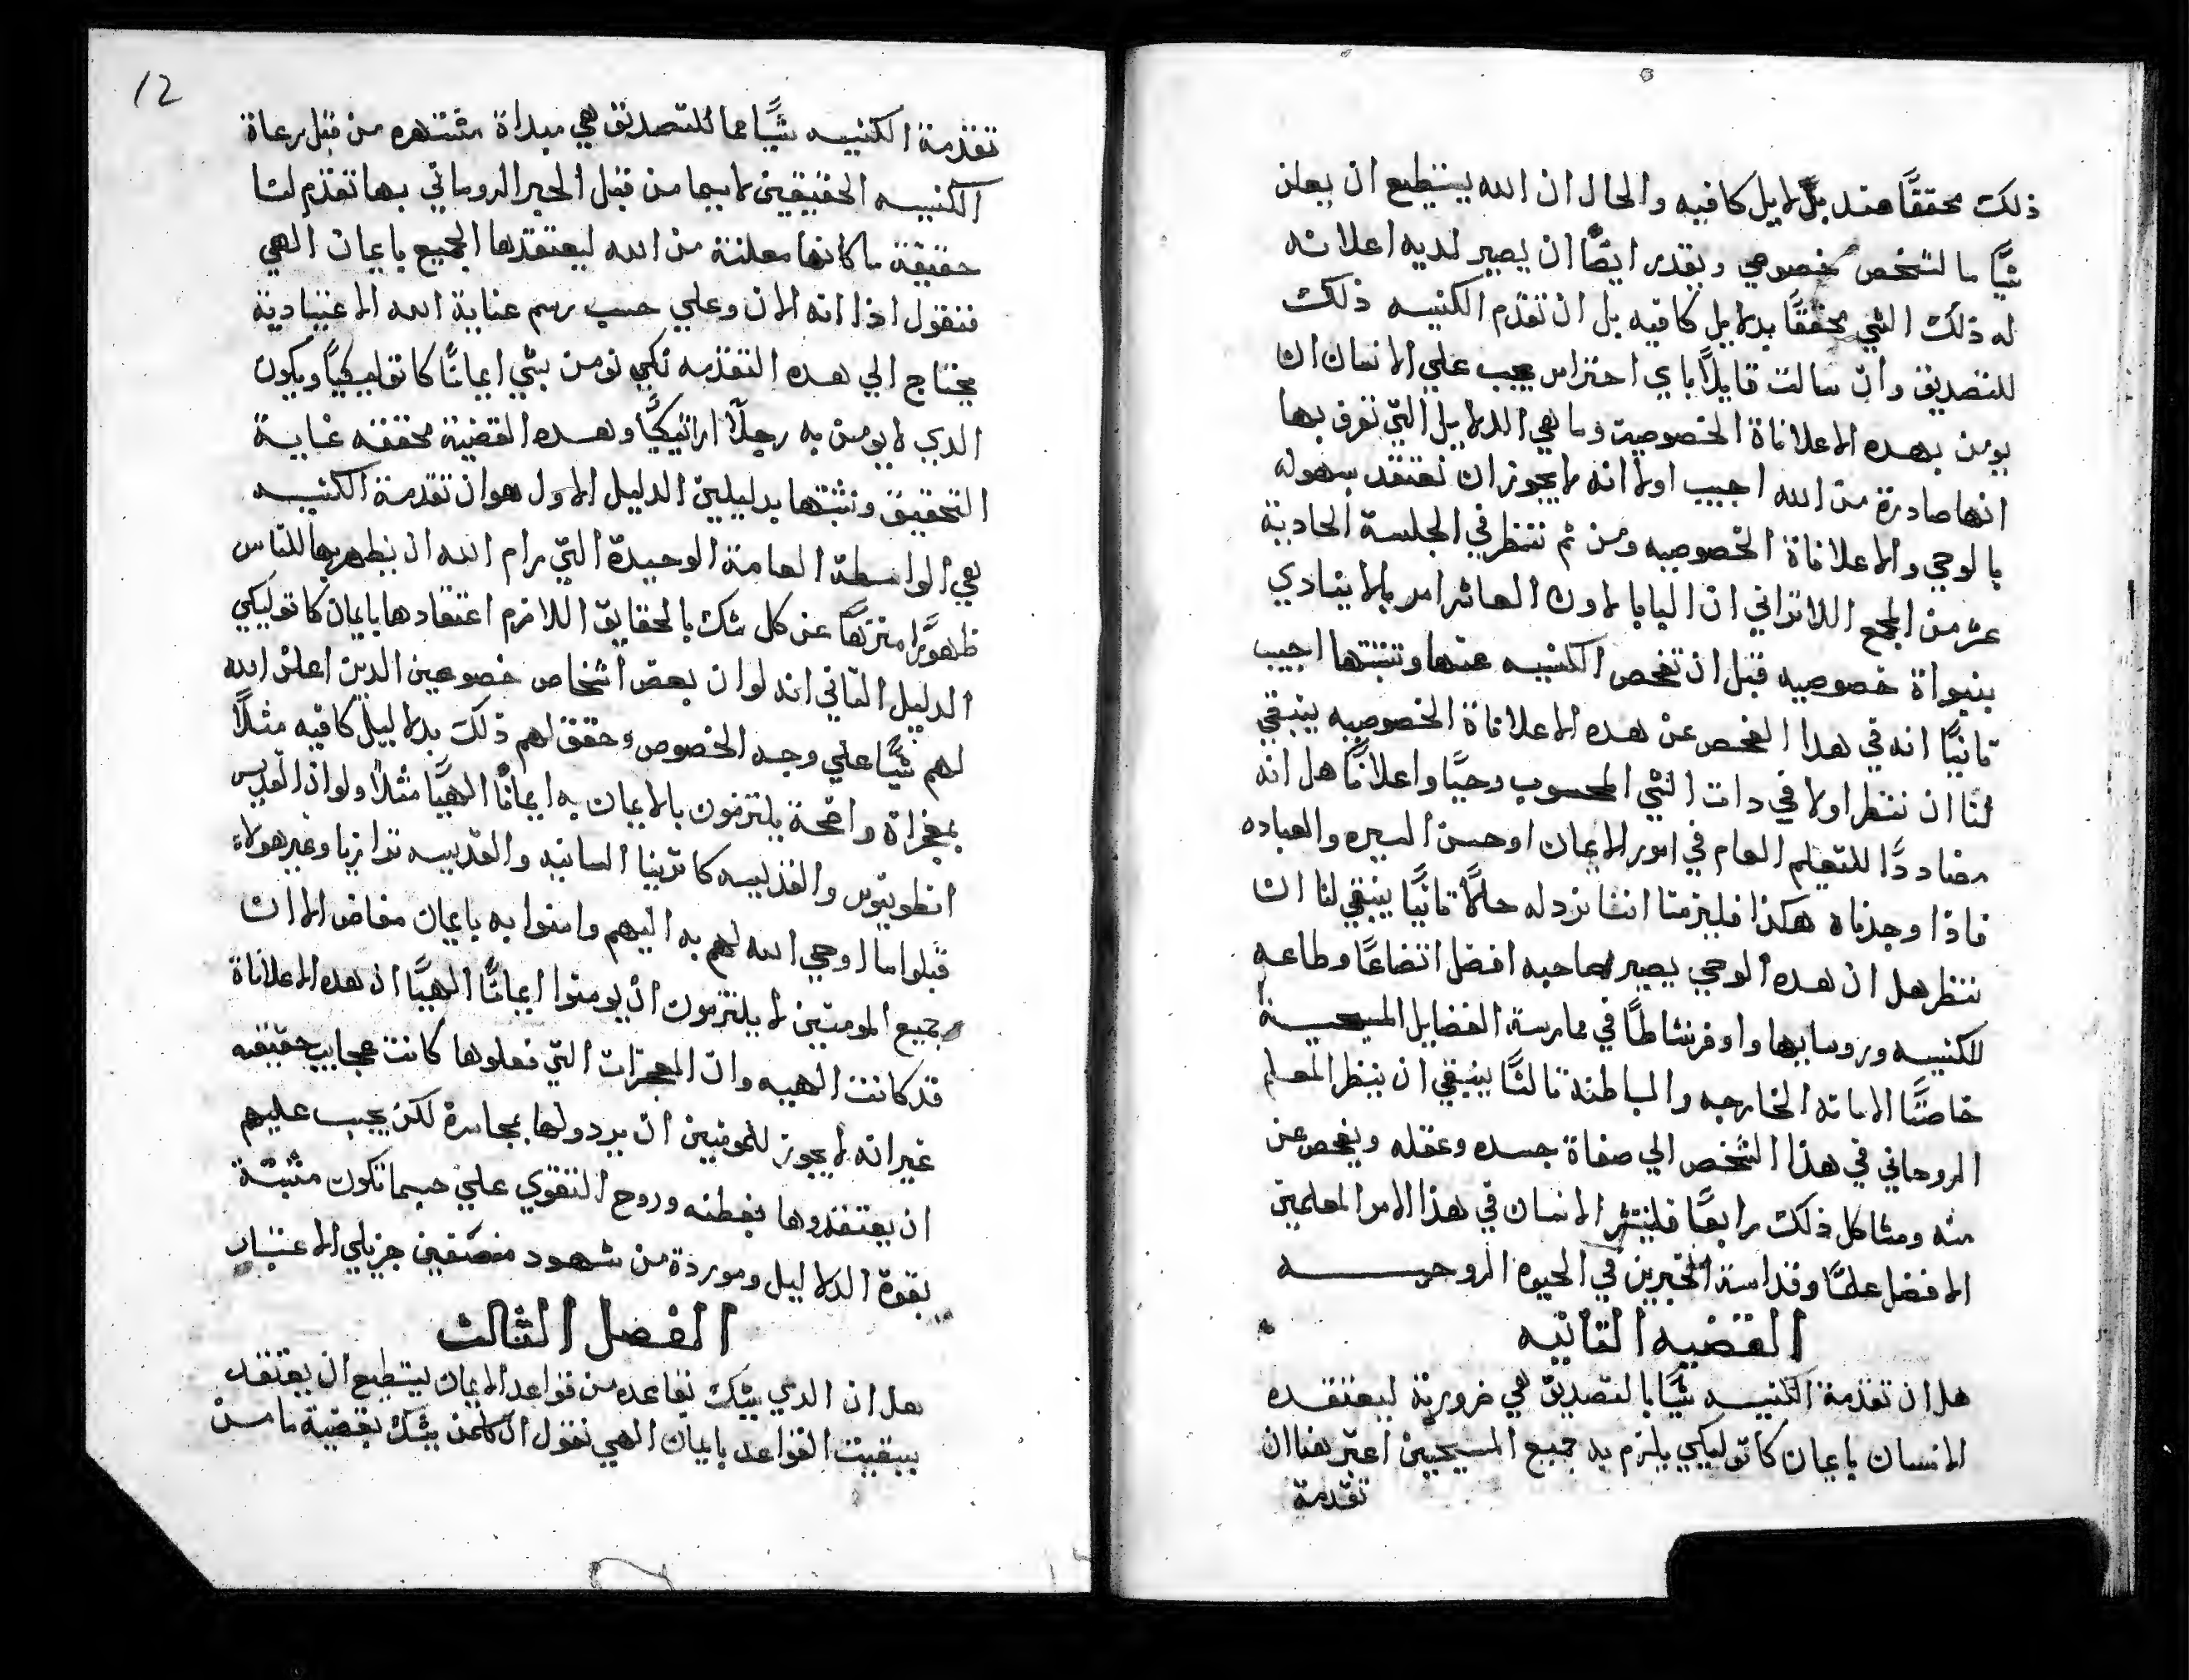 ذلك محققًا عنده بدلايل كافيه والحال ان الله يستطيع ان يعلن
شيًا ما لشخص خصوصي ويقدر ايضًا ان يصير لديه اعلانه
له ذلك الشي محققًا بدلايل كافيه بل ان تقدم الكنيسه ذلك
للتصديق وان سالت قايلًا باي احتراس يجب علي الانسان ان
يومن بهده الاعلاناة الخصوصية وما هي الدلايل التي نعرف بها
انها صادرة من الله اجيب اولا انه لا يجوز ان نعتقد بسهوله
بالوحي والاعلاناة الخصوصيه ومن ثم ننظر في الجلسة الحادية
عشر من المجمع اللاتراني ان البابا لاون العاشر امر بالا ينادي
بنبواة خصوصيه قبل ان تفحص الكنيسه عنها وتثبتها اجيب
تانيًا انه في هدا الفحص عن هده الاعلاناة الخصوصيه ينبغي
لنا ان ننظر اولا في دات الشي المحسوب وحيًا واعلانًا هل انه
مضاددًا للتعلم العام في امور الايمان او حسن السيره والعباده
فاذا وجدناه هكذا فليزمنا اننا نرد له حالًا تانيًا ينبغي لنا ان
ننظر هل ان هده الوحي يصير صاحبه افضل اتضاعًا وطاعه
للكنيسه وروسايها واوفر نشاطًا في ممارسة الفضايل المسيحيـــة
خاصتًا الاماته الخارجه والباطنه تالتًا ينبغي ان ينظر المعلم
الروحاني في هذا الشخص الي صفاة جسده وعقله ويفحص عن
منه ومشاكل ذلك رابعًا فليتشر الانسان في هذا الامر المعلمين
الافضل علمًا وقداسة المخبرين في الحيوه الروحيـــــه
القضيه التانيه
هل ان تقدمة الكنيسه شيًا بالتصديق هي ضرورية ليعتقده
الانسان بايمان كاتوليكي يلزم به جميع المسيحيين اعتبر هنا ان
تقدمة
12
تقدمة الكنيسه شيًا ما للتصديق هي مبداة مشتهره من قبل رعاة
الكنيسه الحقيقين لا سيما من قبل الحبر الروماني بها تقدم لنا
حقيقة ما كانها معلنة من الله ليعتقدها الجميع بايمان الهي
فنقول اذا انه الان وعلي حسب رسم عناية الله الاعتيادية
يحتاج الي هده التقدمه لكي نومن بشي ايمانًا كاتوليكيًا ويكون
الدي لا يومن به رجلًا اراتيكيًا وهده القضية محققه غايــة
التحقيق ونثبتها بدليلين الدليل الاول هو ان تقدمة الكنيســه
هي الواسطة العامة الوحيدة التي رام الله ان يظهر بها للناس
ظهورًا منزهًا عن كل شك بالحقايق اللازم اعتقادها بايمان كاتوليكي
الدليل التاني انه لو ان بعض اشخاص خصوصين الدين اعلن الله
لهم شيًا علي وجه الخصوص وحقق لهم ذلك بدلاليل كافيه مثلًا
بمعجزاة واضحة يلتزمون بالايمان به ايمانًا الهيًا مثلًا ولو اذ القديس
انطونيوس والقديسه كاترينا السانيه والقديسه تواتريا وغير هولاء
قبلوا ما اوحي الله لهم به اليهم وامنوا به بايمان مفاض الا ان
جميع المومنين لا يلتزمون ان يومنوا ايمانًا الهيًا ان هده الاعلاناة
قد كانت الهيه وان المعجزات التي فعلوها كانت عجايب حقيقيه
غير انه لا يجوز للمومنين ان يردولها بجاسرة لكن يجب عليهم
ان يعتقدوها بفطنه وروح التقوي علي حسبما تكون مثبتــة
بقوة الدلاليل وموردة من شهود منصفين جزيلي الاعتبار
الفصل الثالث
هل ان الدي يشك بقاعده من قواعد الايمان يستطيع ان يعتقد
ببقيت القواعد بايمان الهي نقول ان كلمن يشك بقضية ما مــن